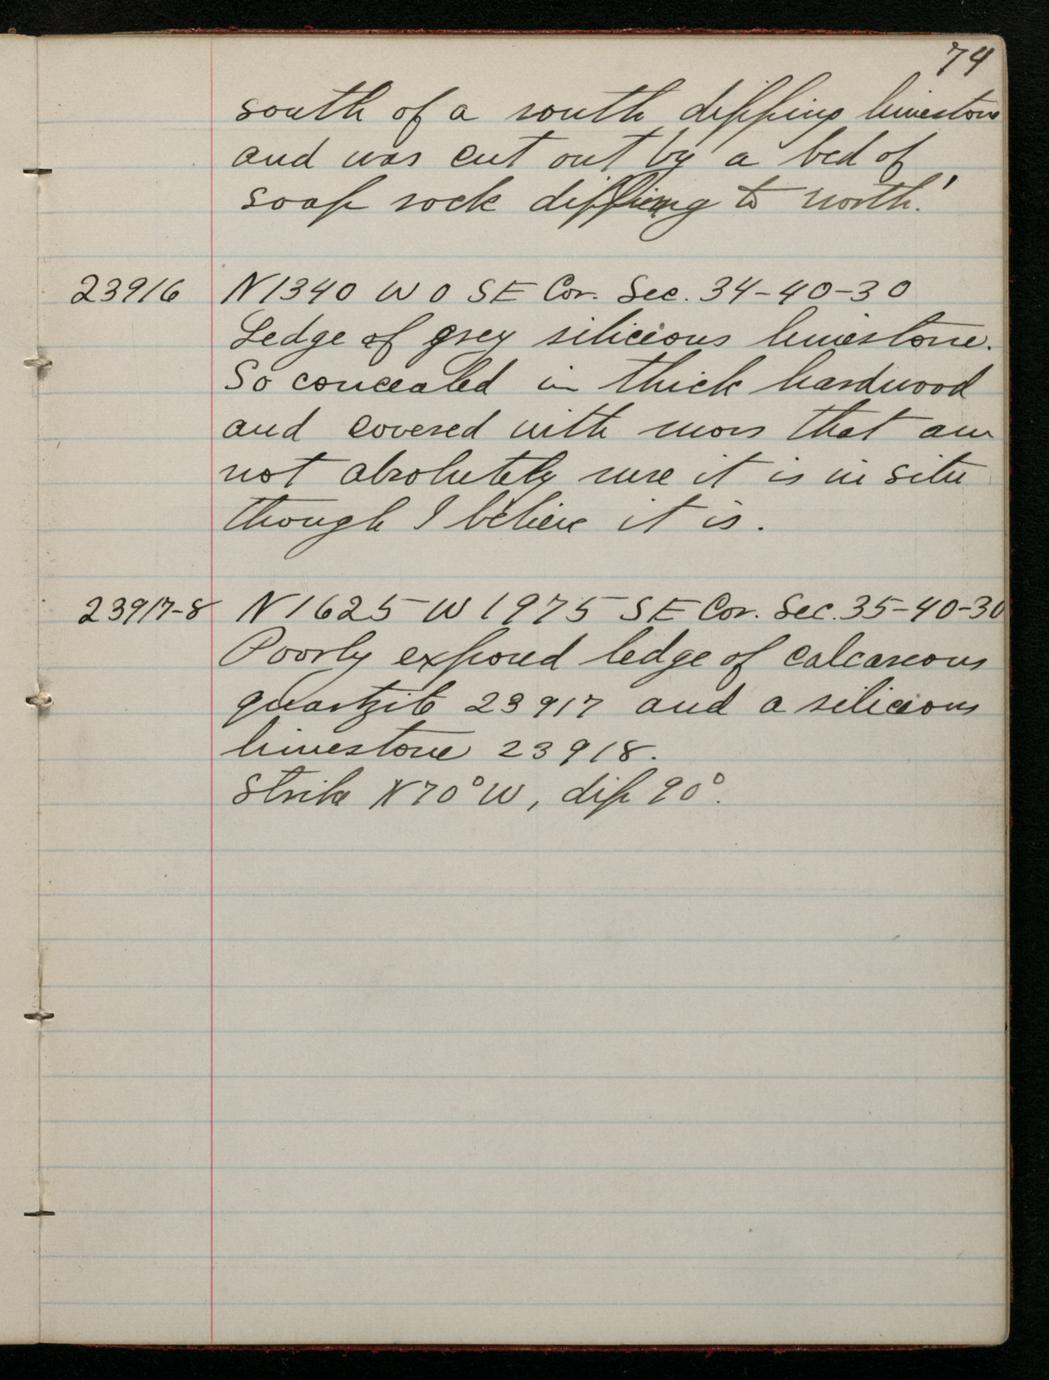 74
south of a south dipping limestone
and was cut out by a bed of
soap rock dipping to north.'
23916 N 1340 W 0 SE Cor. Sec. 34-40-30
Ledge of grey silicious limestone.
So concealed in thick hardwood
and covered with moss that am
not absolutely sure it is in situ
though I believe it is.
23917-8 N 1625 W 1975 SE Cor. Sec. 35-40-30
Poorly exposed ledge of calcareous
quartzite 23917 and a silicious
limestone 23918.
Strike N70°W, dip 90°.